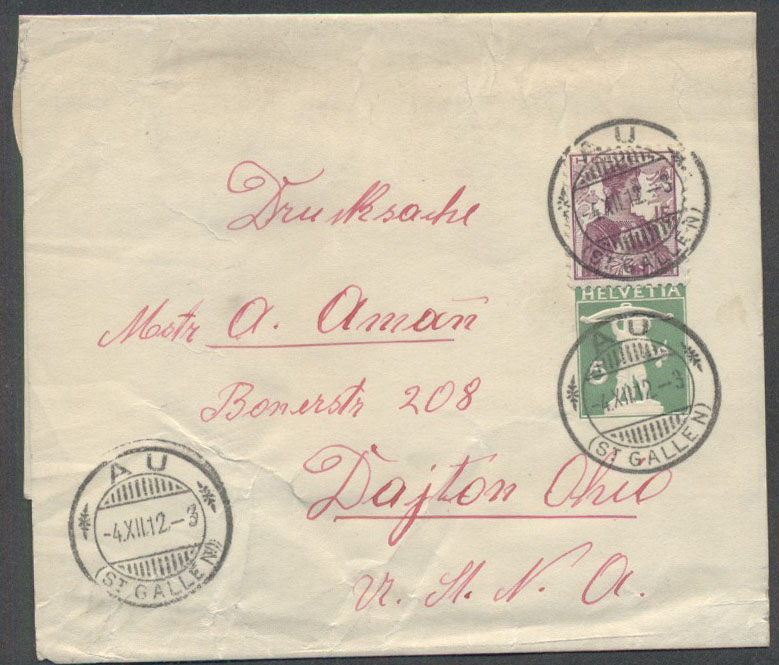 Drucksache
Mstr A. Amañ
Bonerstr 208
Dajton Ohio
U. St. N. A.
AU
-4.XII.12.-3
(ST GALLEN)
HELVETIA
5
AU
-4.XII.12.-3
(ST GALLEN)
AU
-4.XII.12.-3
(ST GALLEN)